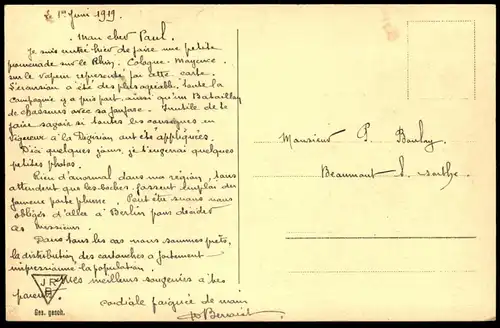 Le 1er Juin 1919.
Mon cher Paul.
Je suis rentré hier de faire une petite
promenade sur le Rhin, Cologne - Mayence,
sur le vapeur représenté par cette carte.
L'excursion a été des plus agréable, toute la
compagnie y a pris part, ainsi qu'un Bataillon
de chasseurs avec sa fanfare. Inutile de te
faire savoir si toutes les consignes en
vigueur à la Division ont été appliquées.
Dès quelques jours, je t'enverrai quelques
petites photos.
Rien d'anormal dans ma région, tous
attendent que les boches fassent emploi du
fameux porte plume. Peut être serons nous
obligés d'aller à Berlin pour décider
ces Messieurs.
Dans tous les cas nous sommes prêts,
la distribution des cartouches a fortement
impressionné la population.
Mes meilleurs souvenirs à tes
parents.
cordiale poignée de main
Monsieur P. Boulay
Beaumont s. Sarthe.
JRB
Ges. gesch.